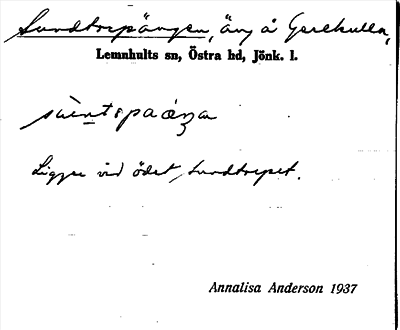 Sundtorpängen, äng å Gerekulla,
Lemnhults sn, Östra hd, Jönk. l.
Ligger vid ödet, Sundtorpet.
Annalisa Anderson 1937